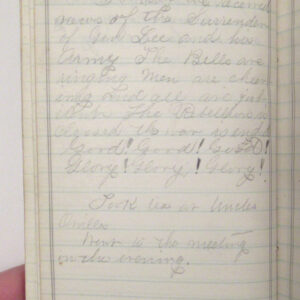 news of the Surrender
of Gen Lee and his
Army The Bells are
ringing Men are cheer
ing and all are
The Rebellion is
the war is ended
Good! Good! Good!
Glory! Glory! Glory!
Took tea at Uncle
Went to the meeting
in the evening.